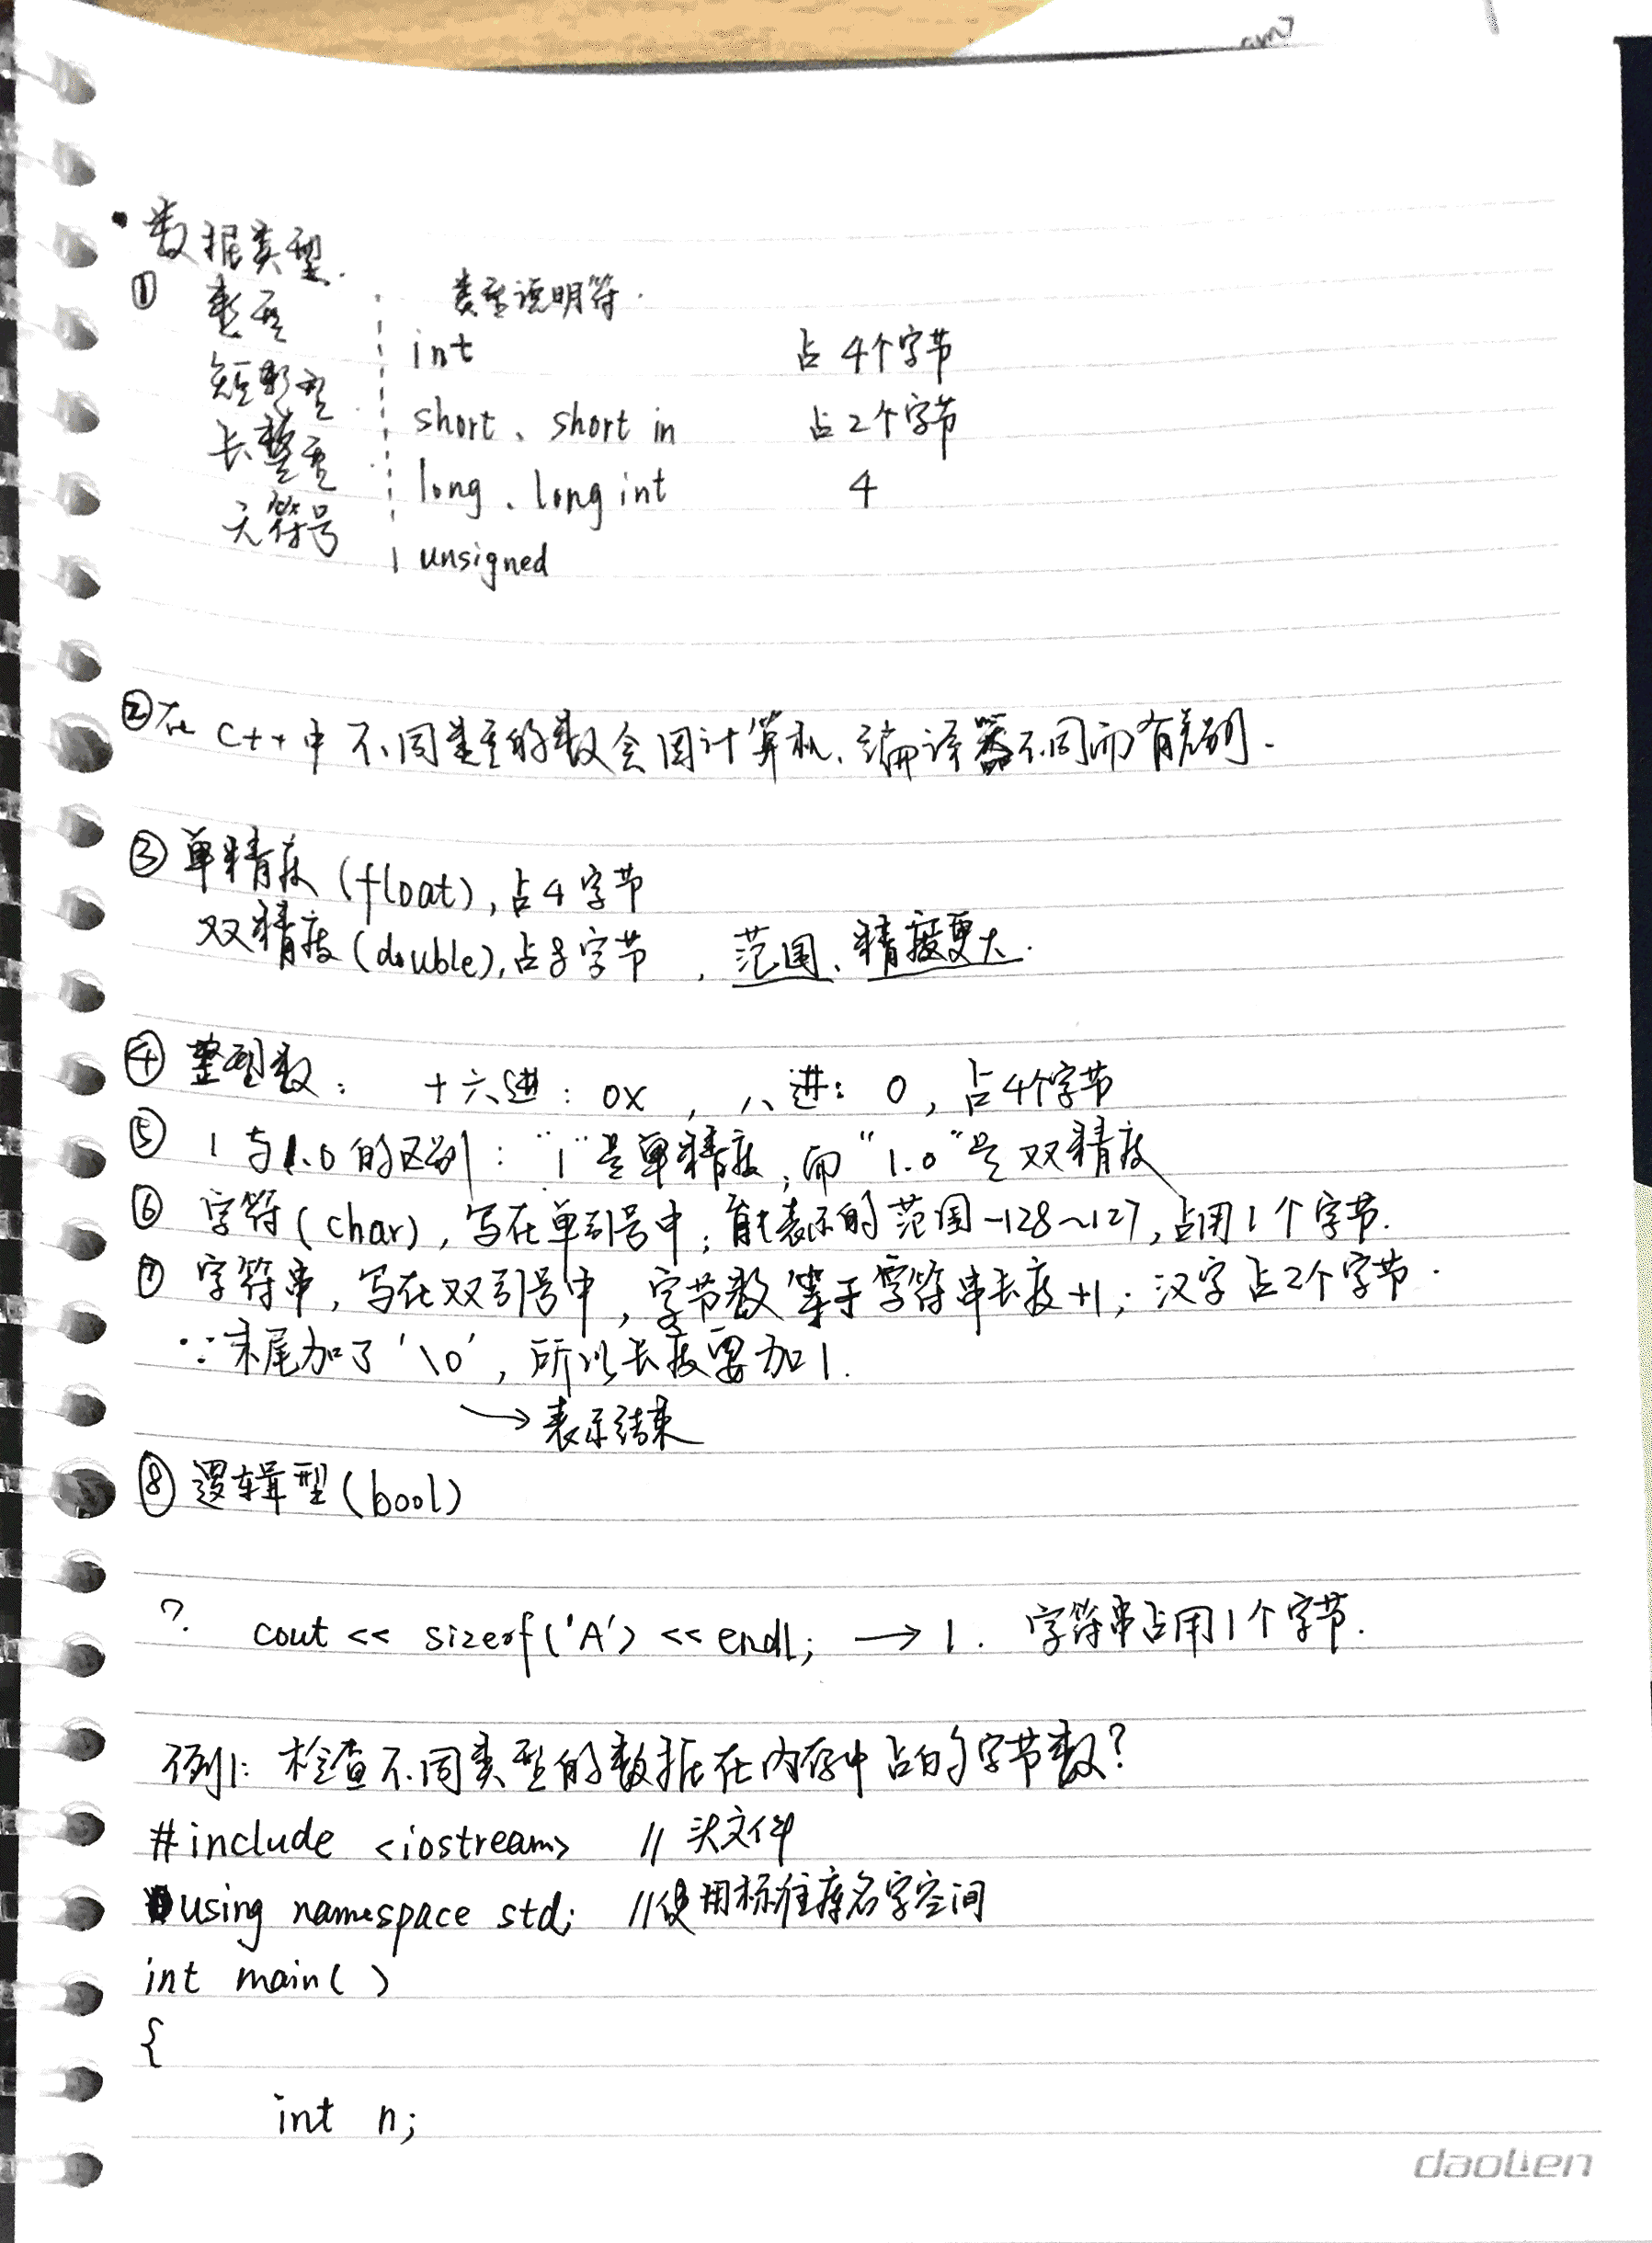 · 数据类型.
① 整型 类型说明符.
int 占 4个字节
短整型 short、short in 占2个字节
长整型 long、long int 4
无符号 unsigned
②在C++中不同类型的数会因计算机、编译器不同而有差别.
③单精度(float),占4字节
双精度(double),占8字节,范围、精度更大.
④整型数: 十六进: 0x , 八进: 0, 占4个字节
⑤ 1与1.0的区别: "1"是单精度,而"1.0"是双精度
⑥ 字符(char), 写在单引号中;能表示的范围-128~127,占用1个字节.
⑦ 字符串,写在双引号中,字节数等于字符串长度+1; 汉字占2个字节.
∵末尾加了'\0', 所以长度要加1.
→表示结束
⑧逻辑型(bool)
? cout << sizeof('A') << endl; → 1. 字符串占用1个字节.
例1: 检查不同类型的数据在内存中占的字节数?
#include <iostream> // 头文件
using namespace std; //使用标准库名字空间
int main()
{
int n;
daolen